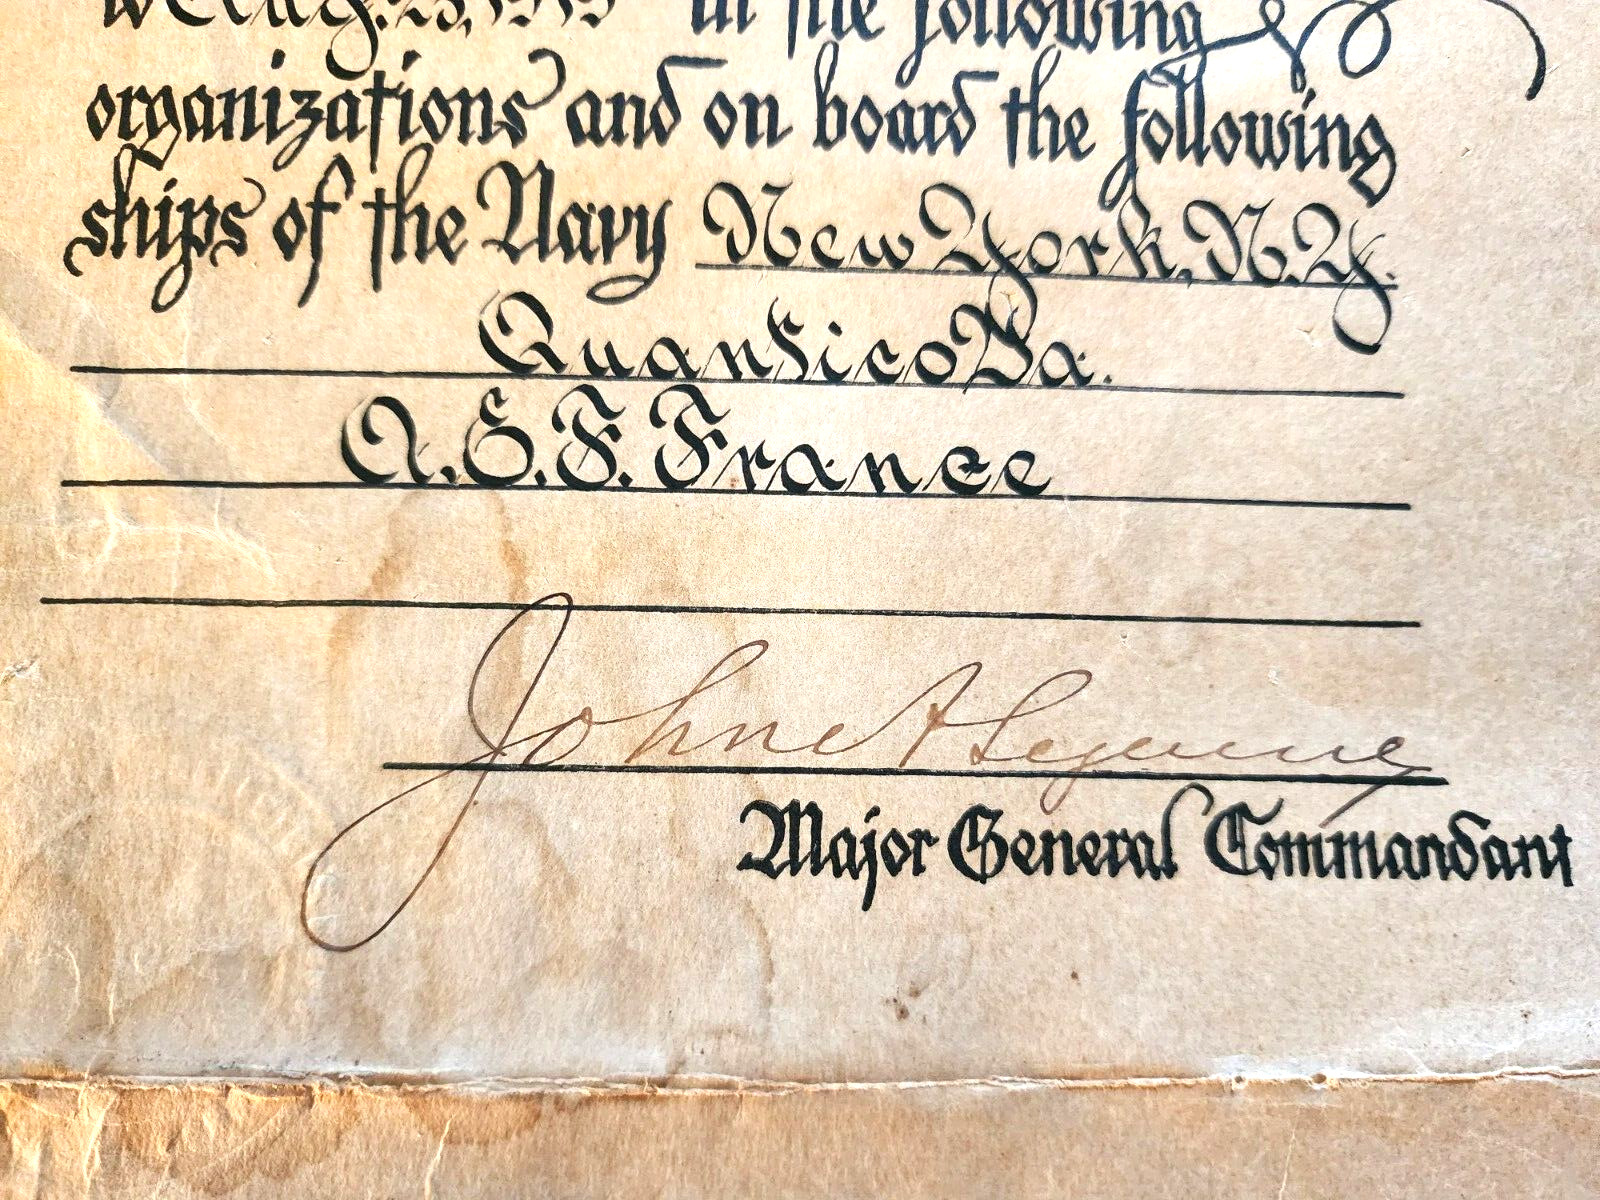 to Aug. 25, 1919 in the following
organizations and on board the following
ships of the Navy New York, N.Y.
Quantico Va.
A.E.F. France
John A Lejeune
Major General Commandant